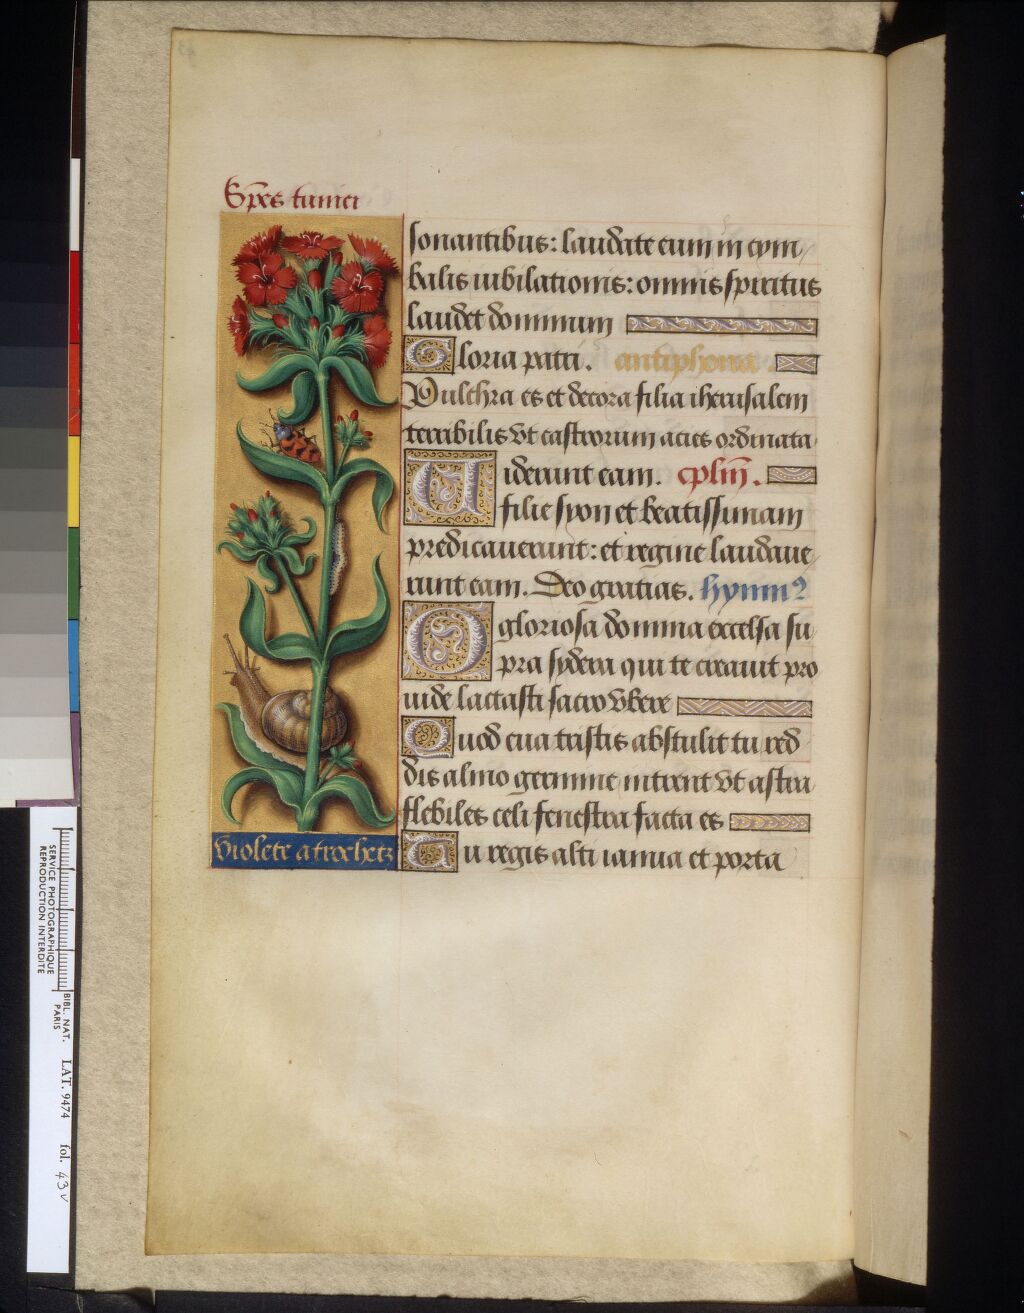 Spẽs tunici
sonantibus: laudate eum in cym
balis iubilationis: omnis spiritus
laudet dominum
Gloria patri. antiphona.
Pulchra es et decora filia iherusalem
terribilis vt castrorum acies ordinata
Uiderunt eam. cplm̃.
filie syon et beatissimam
predicauerunt: et regine laudaue
runt eam. Deo gratias. hymn9
O gloriosa domina excelsa su
pra sydera qui te creauit pro
uide lactasti sacro vbere
Quod eua tristis abstulit tu red
dis almo germine intrent vt astra
flebiles celi fenestra facta es
Tu regis alti ianua et porta
Violete a trochetz
SERVICE PHOTOGRAPHIQUE
REPRODUCTION INTERDITE
BIBL. NAT.
PARIS
LAT. 9474 fol. 43 v